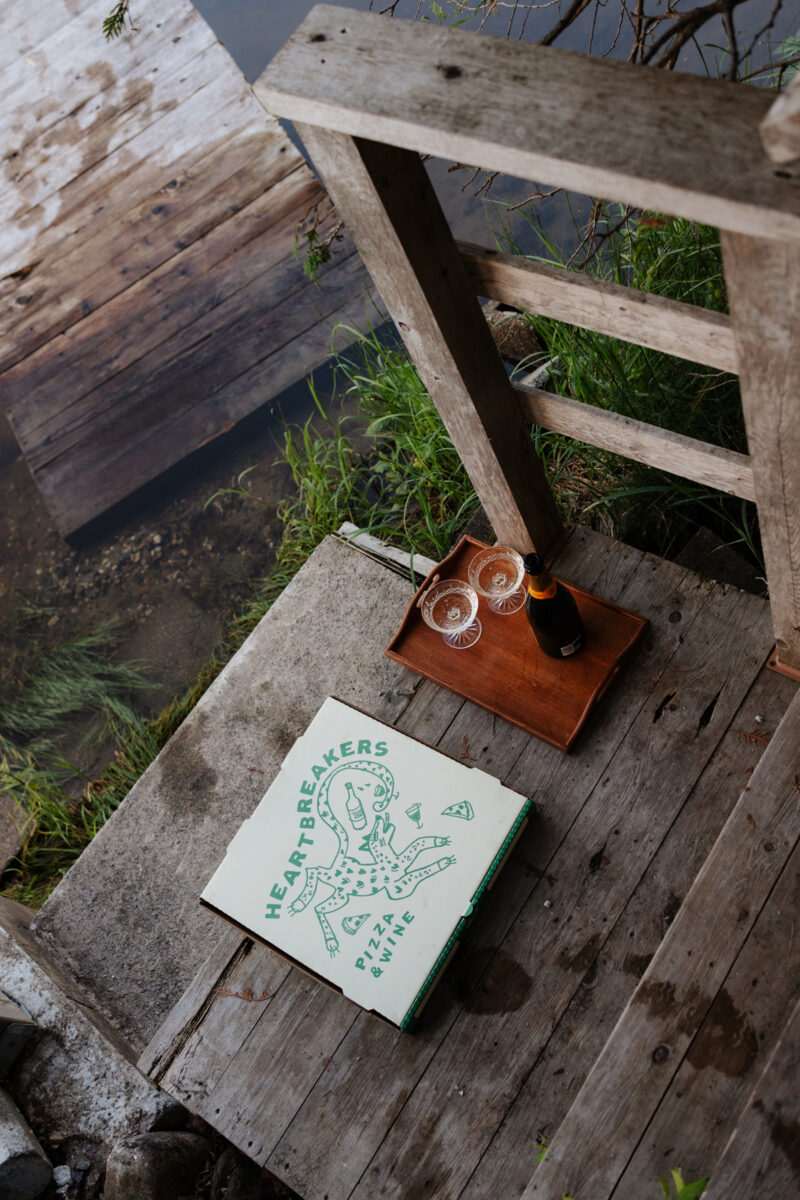 HEARTBREAKERS
PIZZA
& WINE